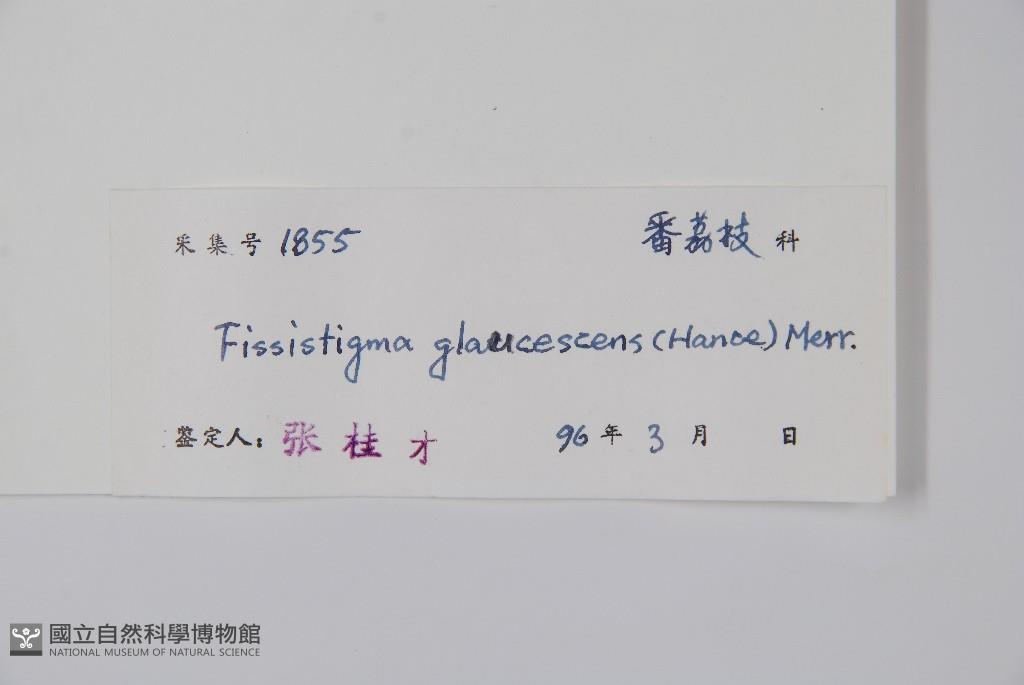 采集号 1855 番荔枝 科
Fissistigma glaucescens (Hance) Merr.
鉴定人: 张桂才 96 年 3 月 日
國立自然科學博物館
NATIONAL MUSEUM OF NATURAL SCIENCE